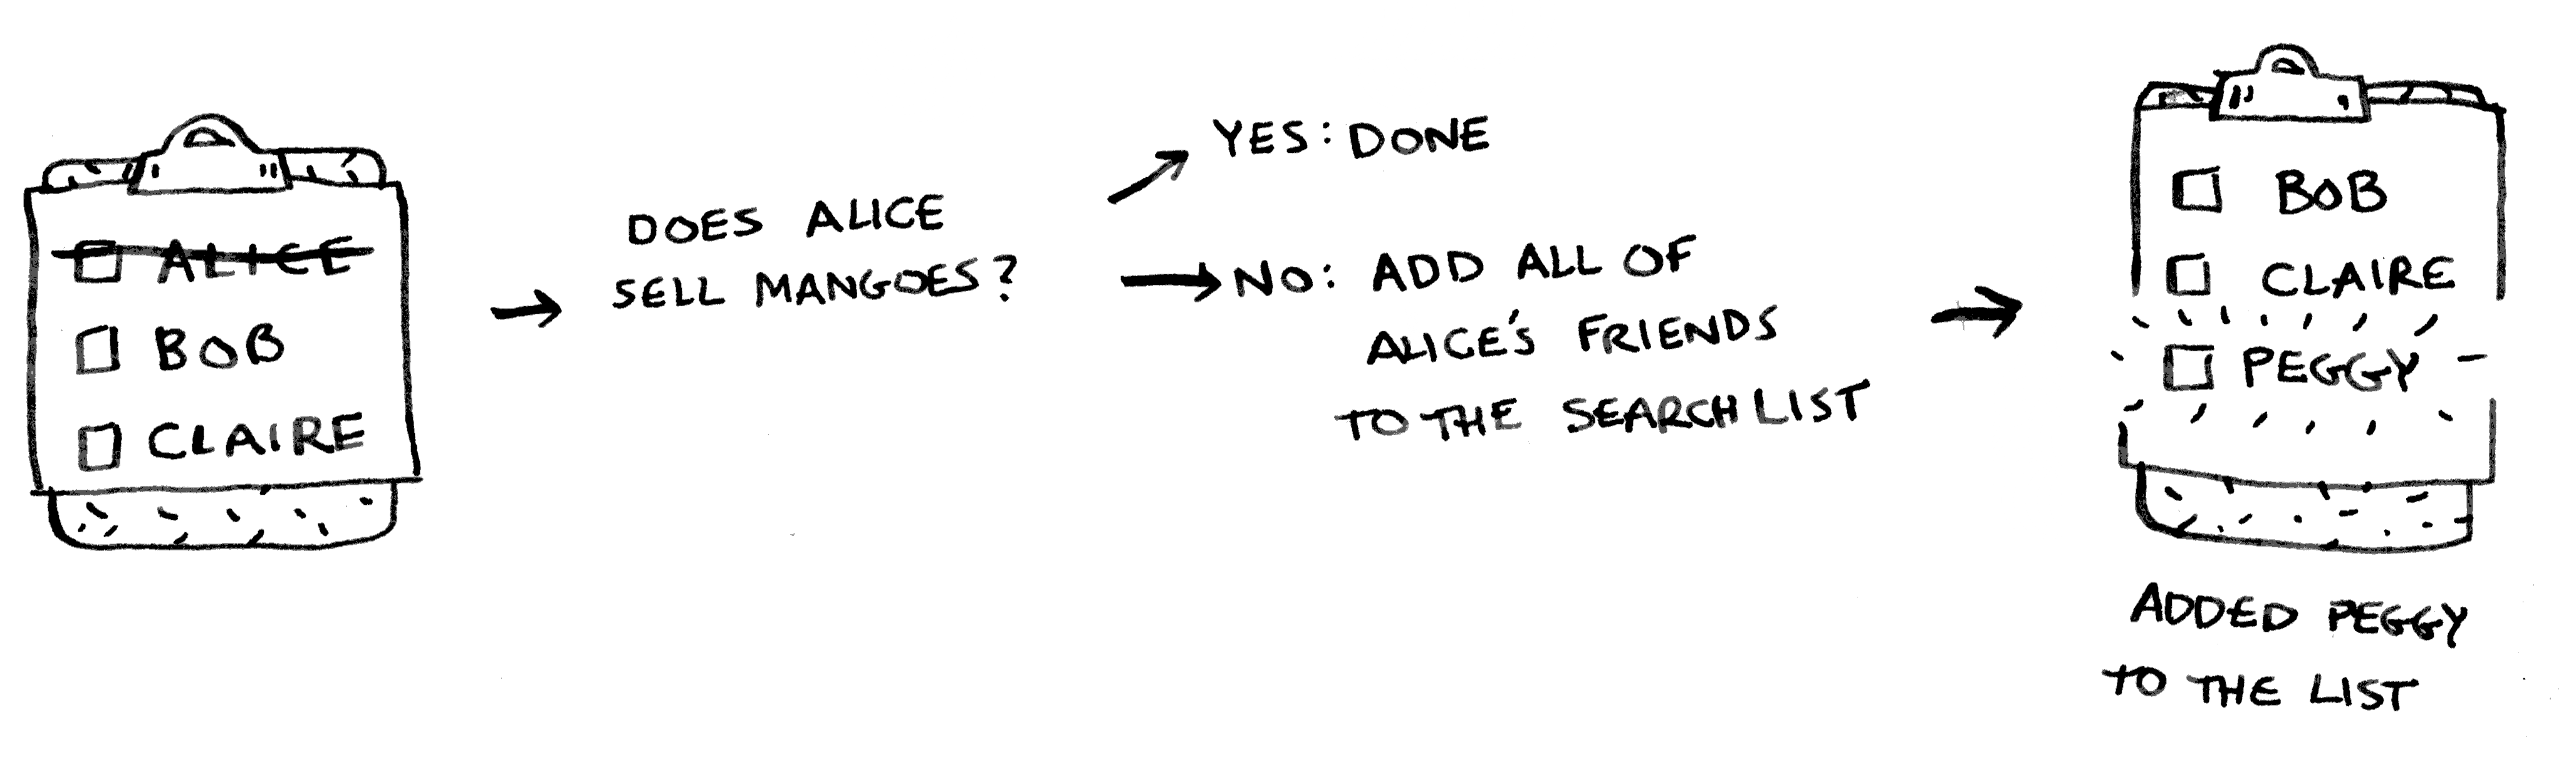 ALICE
BOB
CLAIRE
DOES ALICE
SELL MANGOES?
YES: DONE
NO: ADD ALL OF
ALICE'S FRIENDS
TO THE SEARCH LIST
BOB
CLAIRE
PEGGY
ADDED PEGGY
TO THE LIST